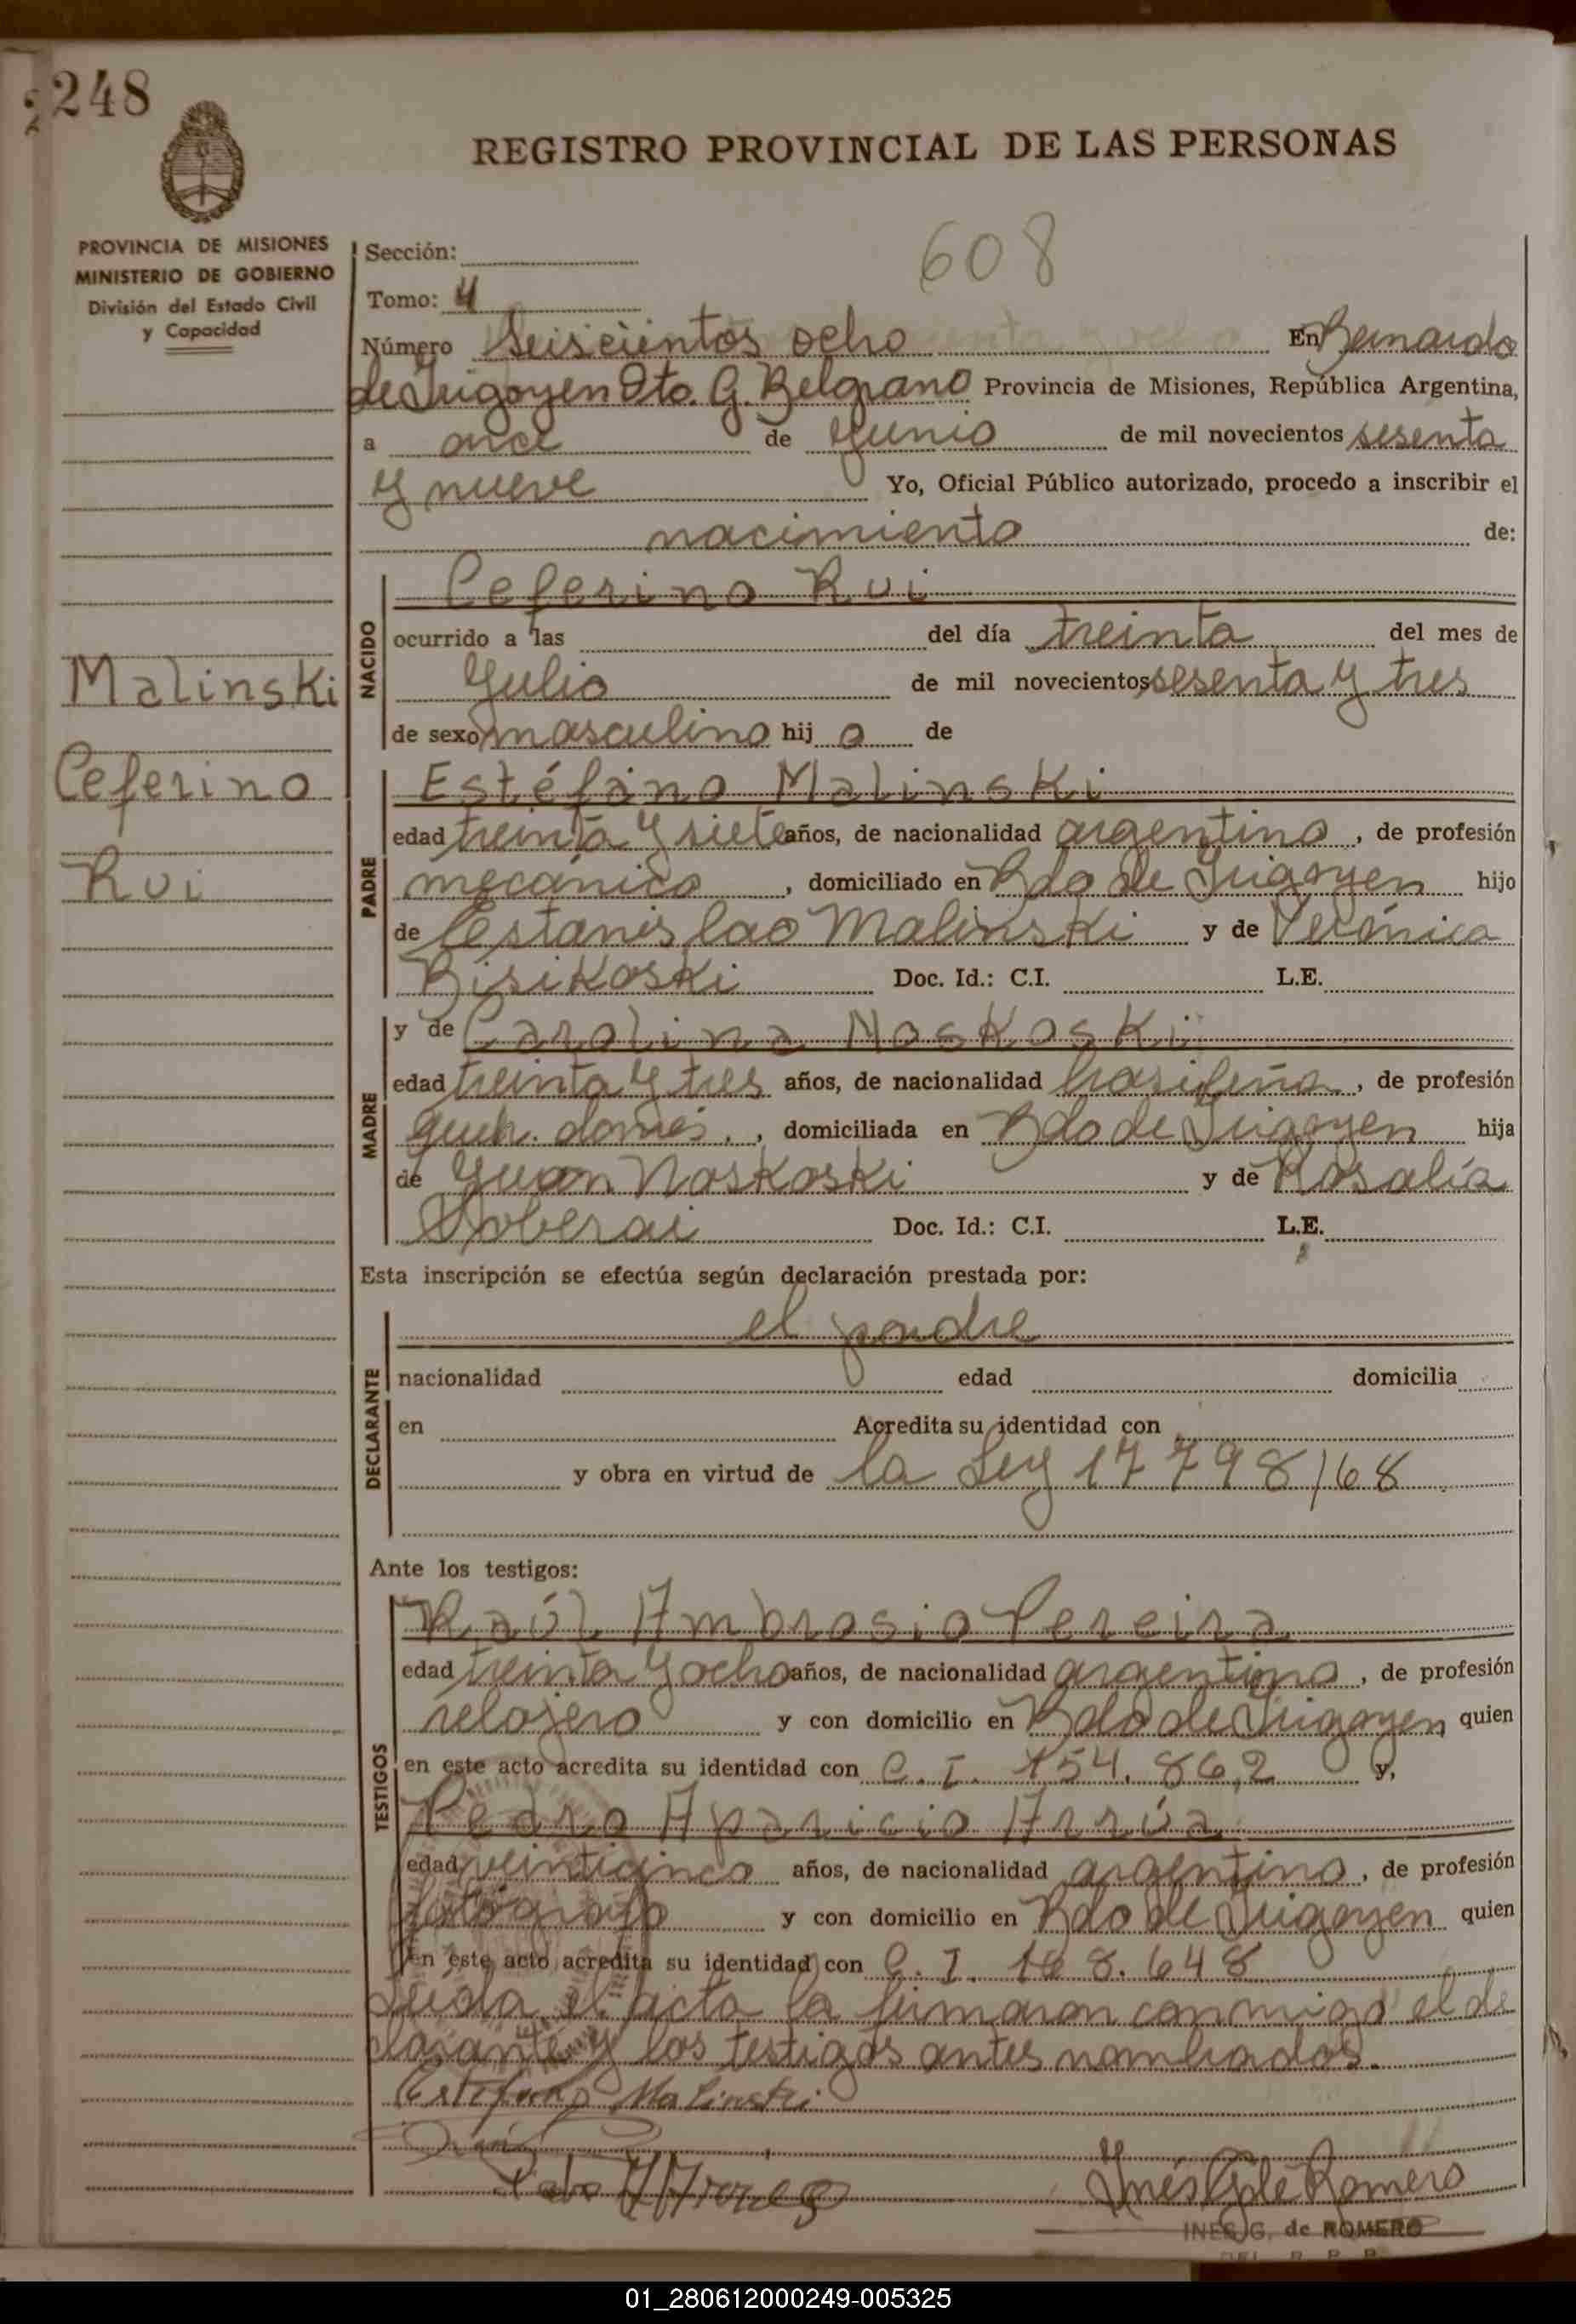 248
REGISTRO PROVINCIAL DE LAS PERSONAS
PROVINCIA DE MISIONES
MINISTERIO DE GOBIERNO
División del Estado Civil
y Capacidad
608
Sección:
Tomo: 4
Número Seiscientos ocho En Bernardo
de Irigoyen Dto. G. Belgrano Provincia de Misiones, República Argentina,
a once de Junio de mil novecientos sesenta
y nueve Yo, Oficial Público autorizado, procedo a inscribir el
nacimiento de:
NACIDO
Ceferino Rui
ocurrido a las del día treinta del mes de
Julio de mil novecientos sesenta y tres
de sexo masculino hij o de
Malinski
Ceferino
Rui
PADRE
Estéfano Malinski
edad treinta y siete años, de nacionalidad argentino, de profesión
mecánico, domiciliado en Bdo de Irigoyen hijo
de Estanislao Malinski y de Verónica
Risikoski Doc. Id.: C.I. L.E.
MADRE
y de Carolina Noskoski
edad treinta y tres años, de nacionalidad brasileña, de profesión
queh. domés., domiciliada en Bdo de Irigoyen hija
de Juan Noskoski y de Rosalía
Doc. Id.: C.I. L.E.
Esta inscripción se efectúa según declaración prestada por:
DECLARANTE
el padre
nacionalidad edad domicilia
en Acredita su identidad con
y obra en virtud de la Ley 17798/68
Ante los testigos:
TESTIGOS
Raúl Ambrosio Pereira
edad treinta y ocho años, de nacionalidad argentino, de profesión
relojero y con domicilio en Bdo de Irigoyen quien
en este acto acredita su identidad con C.I. 154.862 y,
Pedro Aparicio Arrúa
edad veinticinco años, de nacionalidad argentino, de profesión
fotógrafo y con domicilio en Bdo de Irigoyen quien
en este acto acredita su identidad con C.I. 168.648
Leída el acta la firmaron conmigo el de
clarante y los testigos antes nombrados.
Estefano Malinski
Inés G de Romero
INES G. de ROMERO
01_280612000249-005325